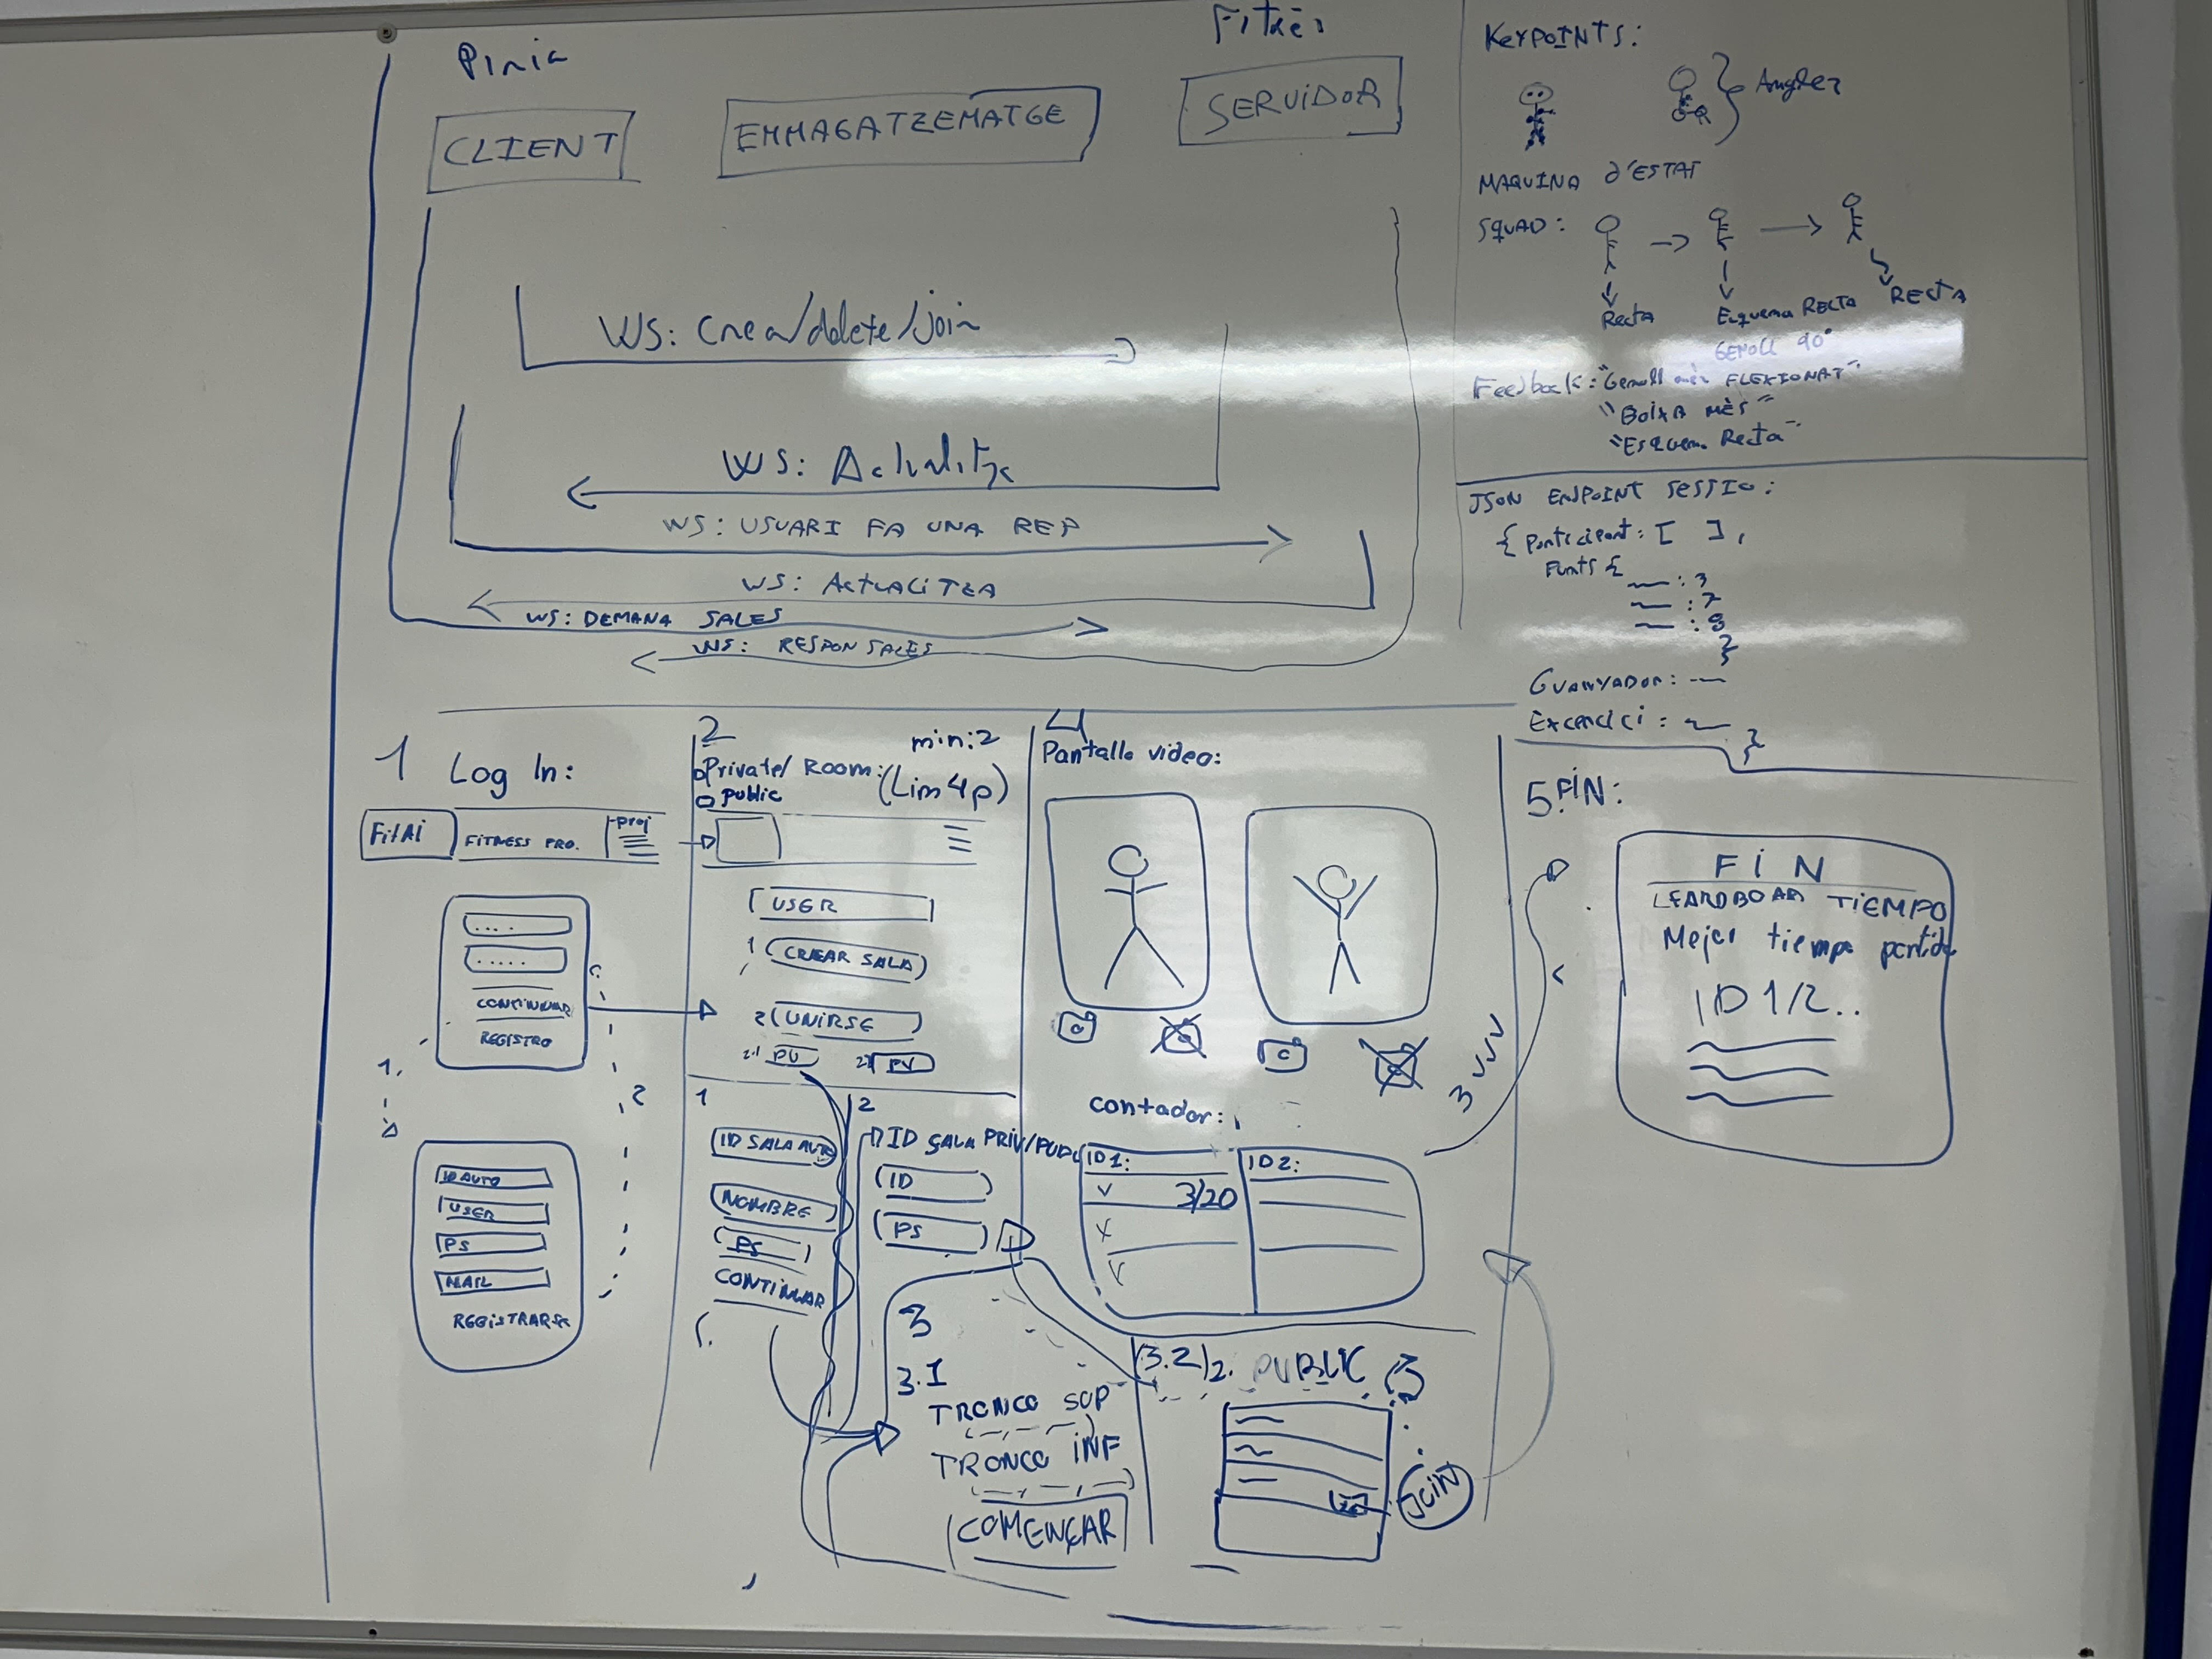 CLIENT
EMMAGATZEMATGE
SERVIDOR
WS: Crea/delete/join
WS: Actualitza
WS: USUARI FA UNA REP
WS: ACTUALITZA
WS: DEMANA SALES
WS: RESPON SALES
KEYPOINTS:
Angles
MAQUINA D'ESTAT
SQUAD:
Recta
Esquema RECTA
GENOLL 90°
RECTA
Feedback: "Genoll més FLEXIONAT"
"BAIXA MÉS"
"Esquema Recta"
JSON ENDPOINT SESSIO:
{ Participant: [ ],
Punts {
: 3
: 7
: 8
}
GUANYADOR:
Exercici:
}
1 Log In:
FitAI
FITNESS PRO.
proj
....
.....
CONTINUAR
REGISTRO
1.
2
ID AUTO
USER
PS
MAIL
REGISTRARSE
2
min:2
Private/ Room: (Lim 4p)
public
USER
1 CREAR SALA
2 UNIRSE
2.1 PU
PV
1
ID SALA AUTO
NOMBRE
PS
CONTINUAR
2
ID SALA PRIV/PUBL
ID
PS
3
3.1
TRONCO SUP
TRONCO INF
COMENÇAR
4
Pantalla video:
C
C
contador:
ID1:
ID2:
V 3/20
X
V
3 VVV
3.2/2. PUBLIC
JOIN
5 FIN:
FIN
LEARDBOAR TIEMPO
Mejor tiempo partida
ID 1/2..